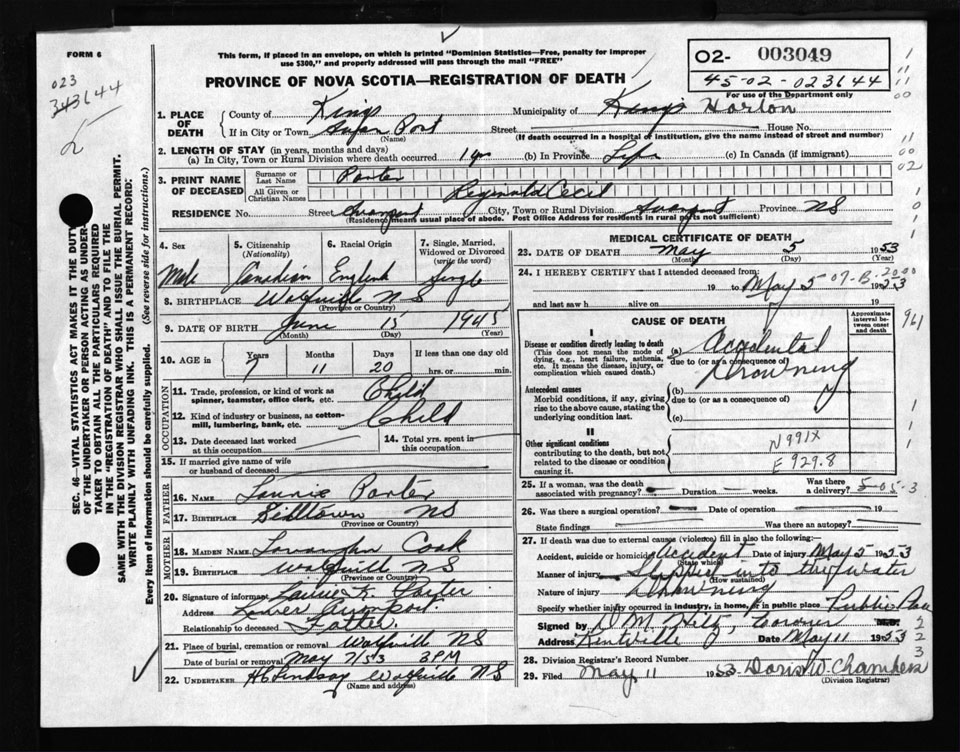 FORM 6
This form, if placed in an envelope, on which is printed "Dominion Statistics—Free, penalty for improper
use $300," and properly addressed will pass through the mail "FREE"
PROVINCE OF NOVA SCOTIA—REGISTRATION OF DEATH
02- 003049
45-02-023644
For use of the Department only
023
343644
2
1. PLACE OF DEATH
County of Kings Municipality of Kings Horton
If in City or Town Avon Port Street House No.
(Name) (If death occurred in a hospital of institution, give the name instead of street and number)
2. LENGTH OF STAY (in years, months and days)
(a) In City, Town or Rural Division where death occurred (b) In Province Life (c) In Canada (if immigrant)
3. PRINT NAME OF DECEASED
Surname or Last Name Porter
All Given or Christian Names Reginald Cecil
RESIDENCE No. Street Avonport City, Town or Rural Division Avonport Province NS
(Residence means usual place of abode. Post Office Address for residents in rural parts not sufficient)
4. Sex Male
5. Citizenship (Nationality) Canadian
6. Racial Origin English
7. Single, Married, Widowed or Divorced (write the word) Single
8. BIRTHPLACE Wolfville NS
(Province or Country)
9. DATE OF BIRTH June 15 1945
(Month) (Day) (Year)
10. AGE in Years 7 Months 11 Days 20 If less than one day old hrs. or min.
OCCUPATION
11. Trade, profession, or kind of work as spinner, teamster, office clerk, etc. Child
12. Kind of industry or business, as cotton-mill, lumbering, bank, etc. Child
13. Date deceased last worked at this occupation
14. Total yrs. spent in this occupation
15. If married give name of wife or husband of deceased
FATHER
16. NAME Laurie Porter
17. BIRTHPLACE NS
(Province or Country)
MOTHER
18. MAIDEN NAME Cook
19. BIRTHPLACE Wolfville NS
(Province or Country)
20. Signature of informant Laurie Porter
Address Lower Avonport.
Relationship to deceased Father.
21. Place of burial, cremation or removal Wolfville NS
Date of burial or removal May 7/53 3PM
22. UNDERTAKER H C Lindsay Wolfville NS
(Name and address)
MEDICAL CERTIFICATE OF DEATH
23. DATE OF DEATH May 5 1953
(Month) (Day)
24. I HEREBY CERTIFY that I attended deceased from:
19 to May 5 1953
07-B-2000
and last saw h alive on 19
CAUSE OF DEATH
Approximate interval between onset and death
I
Disease or condition directly leading to death
(This does not mean the mode of dying, e.g., heart failure, asthenia, etc. It means the disease, injury, or complication which caused death.)
(a) Accidental
due to (or as a consequence of)
Drowning
Antecedent causes
Morbid conditions, if any, giving rise to the above cause, stating the underlying condition last.
(b)
due to (or as a consequence of)
(c)
II
Other significant conditions contributing to the death, but not related to the disease or condition causing it.
N991X
E929.8
961
25. If a woman, was the death associated with pregnancy? Duration weeks. Was there a delivery?
5-05-3
26. Was there a surgical operation? Date of operation 19
State findings Was there an autopsy?
27. If death was due to external causes (violence) fill in also the following:
Accident, suicide or homicide? Accident Date of injury May 5 1953
(State which)
Manner of injury Slipped into the water
(How sustained)
Nature of injury Drowning
Specify whether injury occurred in industry, in home, or in public place Public Place
Signed by D M Hiltz, Coroner M.D.
Address Kentville Date May 11 1953
28. Division Registrar's Record Number
29. Filed May 11 1953 Doris W. Chambers
(Division Registrar)
SEC. 46—VITAL STATISTICS ACT MAKES IT THE DUTY
OF THE UNDERTAKER OR PERSON ACTING AS UNDER-
TAKER TO OBTAIN ALL THE PARTICULARS REQUIRED
IN THE "REGISTRATION OF DEATH" AND TO FILE THE
SAME WITH THE DIVISION REGISTRAR WHO SHALL ISSUE THE BURIAL PERMIT.
WRITE PLAINLY WITH UNFADING INK. THIS IS A PERMANENT RECORD:
Every item of information should be carefully supplied. (See reverse side for instructions.)